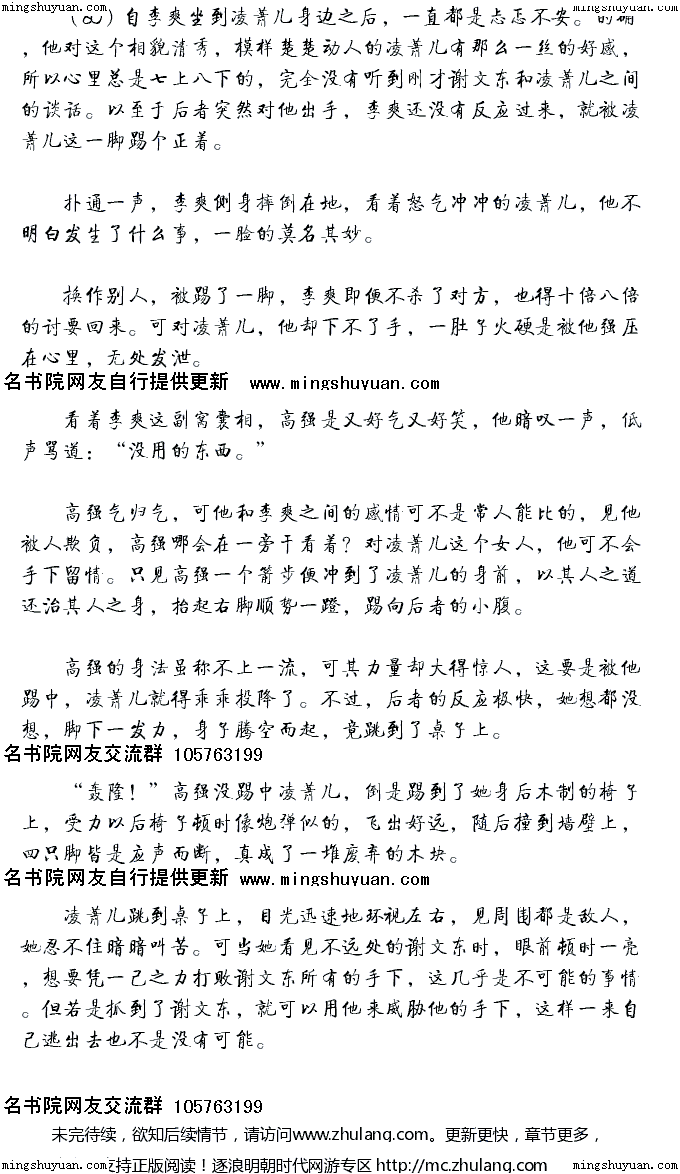 mingshuyuan.com mingshuyuan.com mingshuyuan.com
自李爽坐到凌菁儿身边之后，一直都是忐忑不安。的确
，他对这个相貌清秀，模样楚楚动人的凌菁儿有那么一丝的好感，
所以心里总是七上八下的，完全没有听到刚才谢文东和凌菁儿之间
的谈话。以至于后者突然对他出手，李爽还没有反应过来，就被凌
菁儿这一脚踢个正着。
扑通一声，李爽侧身摔倒在地，看着怒气冲冲的凌菁儿，他不
明白发生了什么事，一脸的莫名其妙。
换作别人，被踢了一脚，李爽即便不杀了对方，也得十倍八倍
的讨要回来。可对凌菁儿，他却下不了手，一肚子火硬是被他强压
在心里，无处发泄。
名书院网友自行提供更新 www.mingshuyuan.com
看着李爽这副窝囊相，高强是又好气又好笑，他暗叹一声，低
声骂道：“没用的东西。”
高强气归气，可他和李爽之间的感情可不是常人能比的，见他
被人欺负，高强哪会在一旁干看着？对凌菁儿这个女人，他可不会
手下留情。只见高强一个箭步便冲到了凌菁儿的身前，以其人之道
还治其人之身，抬起右脚顺势一蹬，踢向后者的小腹。
高强的身法虽称不上一流，可其力量却大得惊人，这要是被他
踢中，凌菁儿就得乖乖投降了。不过，后者的反应极快，她想都没
想，脚下一发力，身子腾空而起，竟跳到了桌子上。
名书院网友交流群 105763199
“轰隆！”高强没踢中凌菁儿，倒是踢到了她身后木制的椅子
上，受力以后椅子顿时像炮弹似的，飞出好远，随后撞到墙壁上，
四只脚皆是应声而断，真成了一堆废弃的木块。
名书院网友自行提供更新 www.mingshuyuan.com
凌菁儿跳到桌子上，目光迅速地环视左右，见周围都是敌人，
她忍不住暗暗叫苦。可当她看见不远处的谢文东时，眼前顿时一亮
，想要凭一己之力打败谢文东所有的手下，这几乎是不可能的事情
。但若是抓到了谢文东，就可以用他来威胁他的手下，这样一来自
己逃出去也不是没有可能。
名书院网友交流群 105763199
未完待续，欲知后续情节，请访问www.zhulang.com。更新更快，章节更多，
持正版阅读！逐浪明朝时代网游专区 http://mc.zhulang.com
mingshuyuan.com mingshuyuan.com mingshuyuan.com